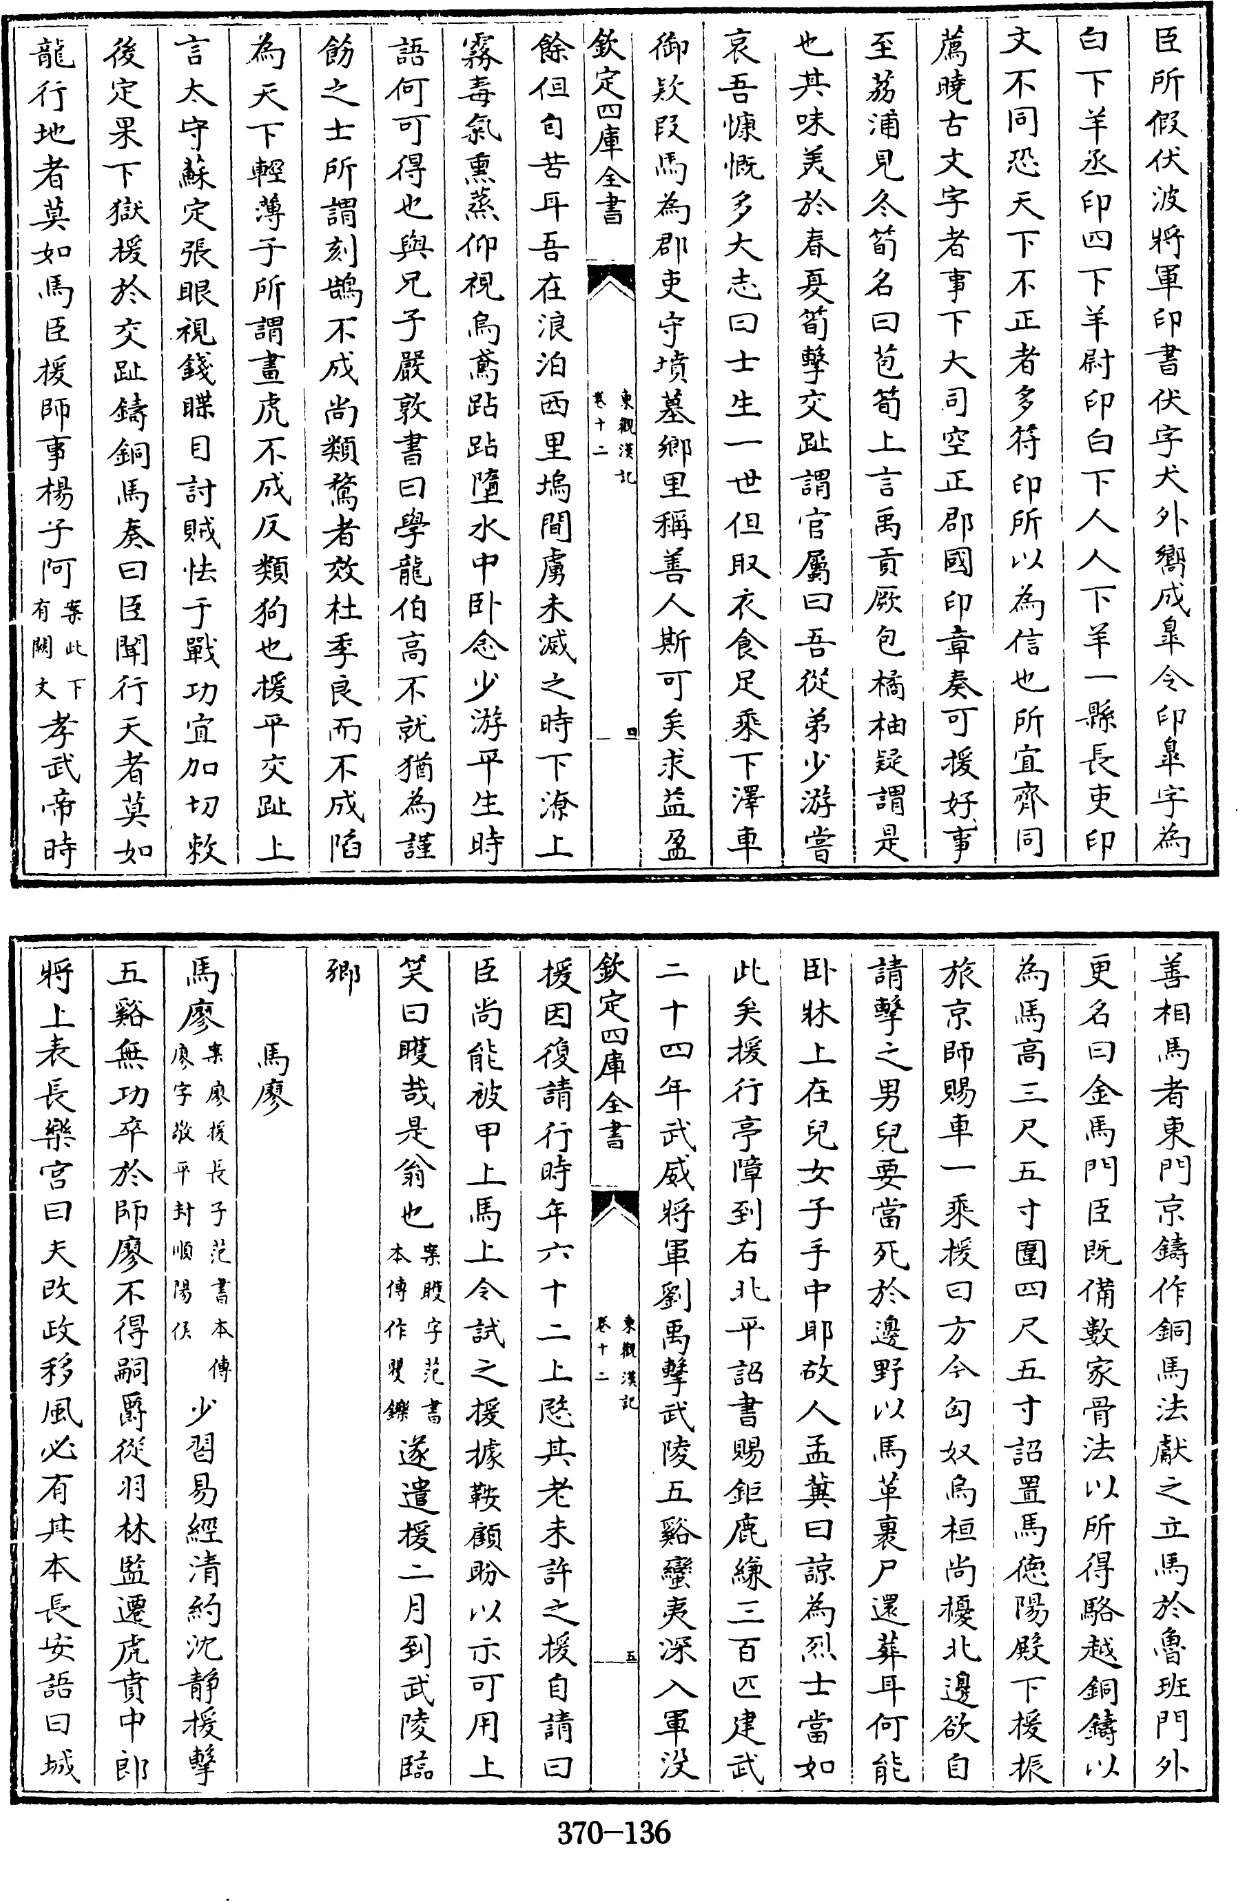 臣所假伏波將軍印書伏字犬外嚮成臯令印臯字為
白下羊丞印四下羊尉印白下人人下羊一縣長吏印
文不同恐天下不正者多符印所以為信也所宜齊同
薦曉古文字者事下大司空正郡國印章奏可援好事
至荔浦見冬筍名曰苞筍上言禹貢厥包橘柚疑謂是
也其味美於春夏筍擊交趾謂官屬曰吾從弟少游嘗
哀吾慷慨多大志曰士生一世但取衣食足乘下澤車
御欵段馬為郡吏守墳墓鄉里稱善人斯可矣求益盈
欽定四庫全書
東觀漢記
卷十二
四
餘但自苦耳吾在浪泊西里塢間虜未滅之時下潦上
霧毒氣熏蒸仰視烏鳶跕跕墮水中卧念少游平生時
語何可得也與兄子嚴敦書曰學龍伯高不就猶為謹
飭之士所謂刻鵠不成尚類鶩者效杜季良而不成陷
為天下輕薄子所謂畫虎不成反類狗也援平交趾上
言太守蘇定張眼視錢䁋目討賊怯于戰功宜加切敕
後定果下獄援於交趾鑄銅馬奏曰臣聞行天者莫如
龍行地者莫如馬臣援師事楊子阿案此下有闕文孝武帝時
善相馬者東門京鑄作銅馬法獻之立馬於魯班門外
更名曰金馬門臣既備數家骨法以所得駱越銅鑄以
為馬高三尺五寸圍四尺五寸詔置馬德陽殿下援振
旅京師賜車一乘援曰方今匈奴烏桓尚擾北邊欲自
請擊之男兒要當死於邊野以馬革裹尸還葬耳何能
卧牀上在兒女子手中耶故人孟冀曰諒為烈士當如
此矣援行亭障到右北平詔書賜鉅鹿縑三百匹建武
二十四年武威將軍劉禹擊武陵五谿蠻夷深入軍沒
欽定四庫全書
東觀漢記
卷十二
五
援因復請行時年六十二上愍其老未許之援自請曰
臣尚能被甲上馬上令試之援據鞍顧盼以示可用上
笑曰矆哉是翁也案矆字范書本傳作矍鑠遂遣援二月到武陵臨
鄉
馬廖
馬廖案廖援長子范書本傳廖字敬平封順陽侯少習易經清約沈靜援擊
五谿無功卒於師廖不得嗣爵從羽林監遷虎賁中郎
將上表長樂宮曰夫改政移風必有其本長安語曰城
370-136